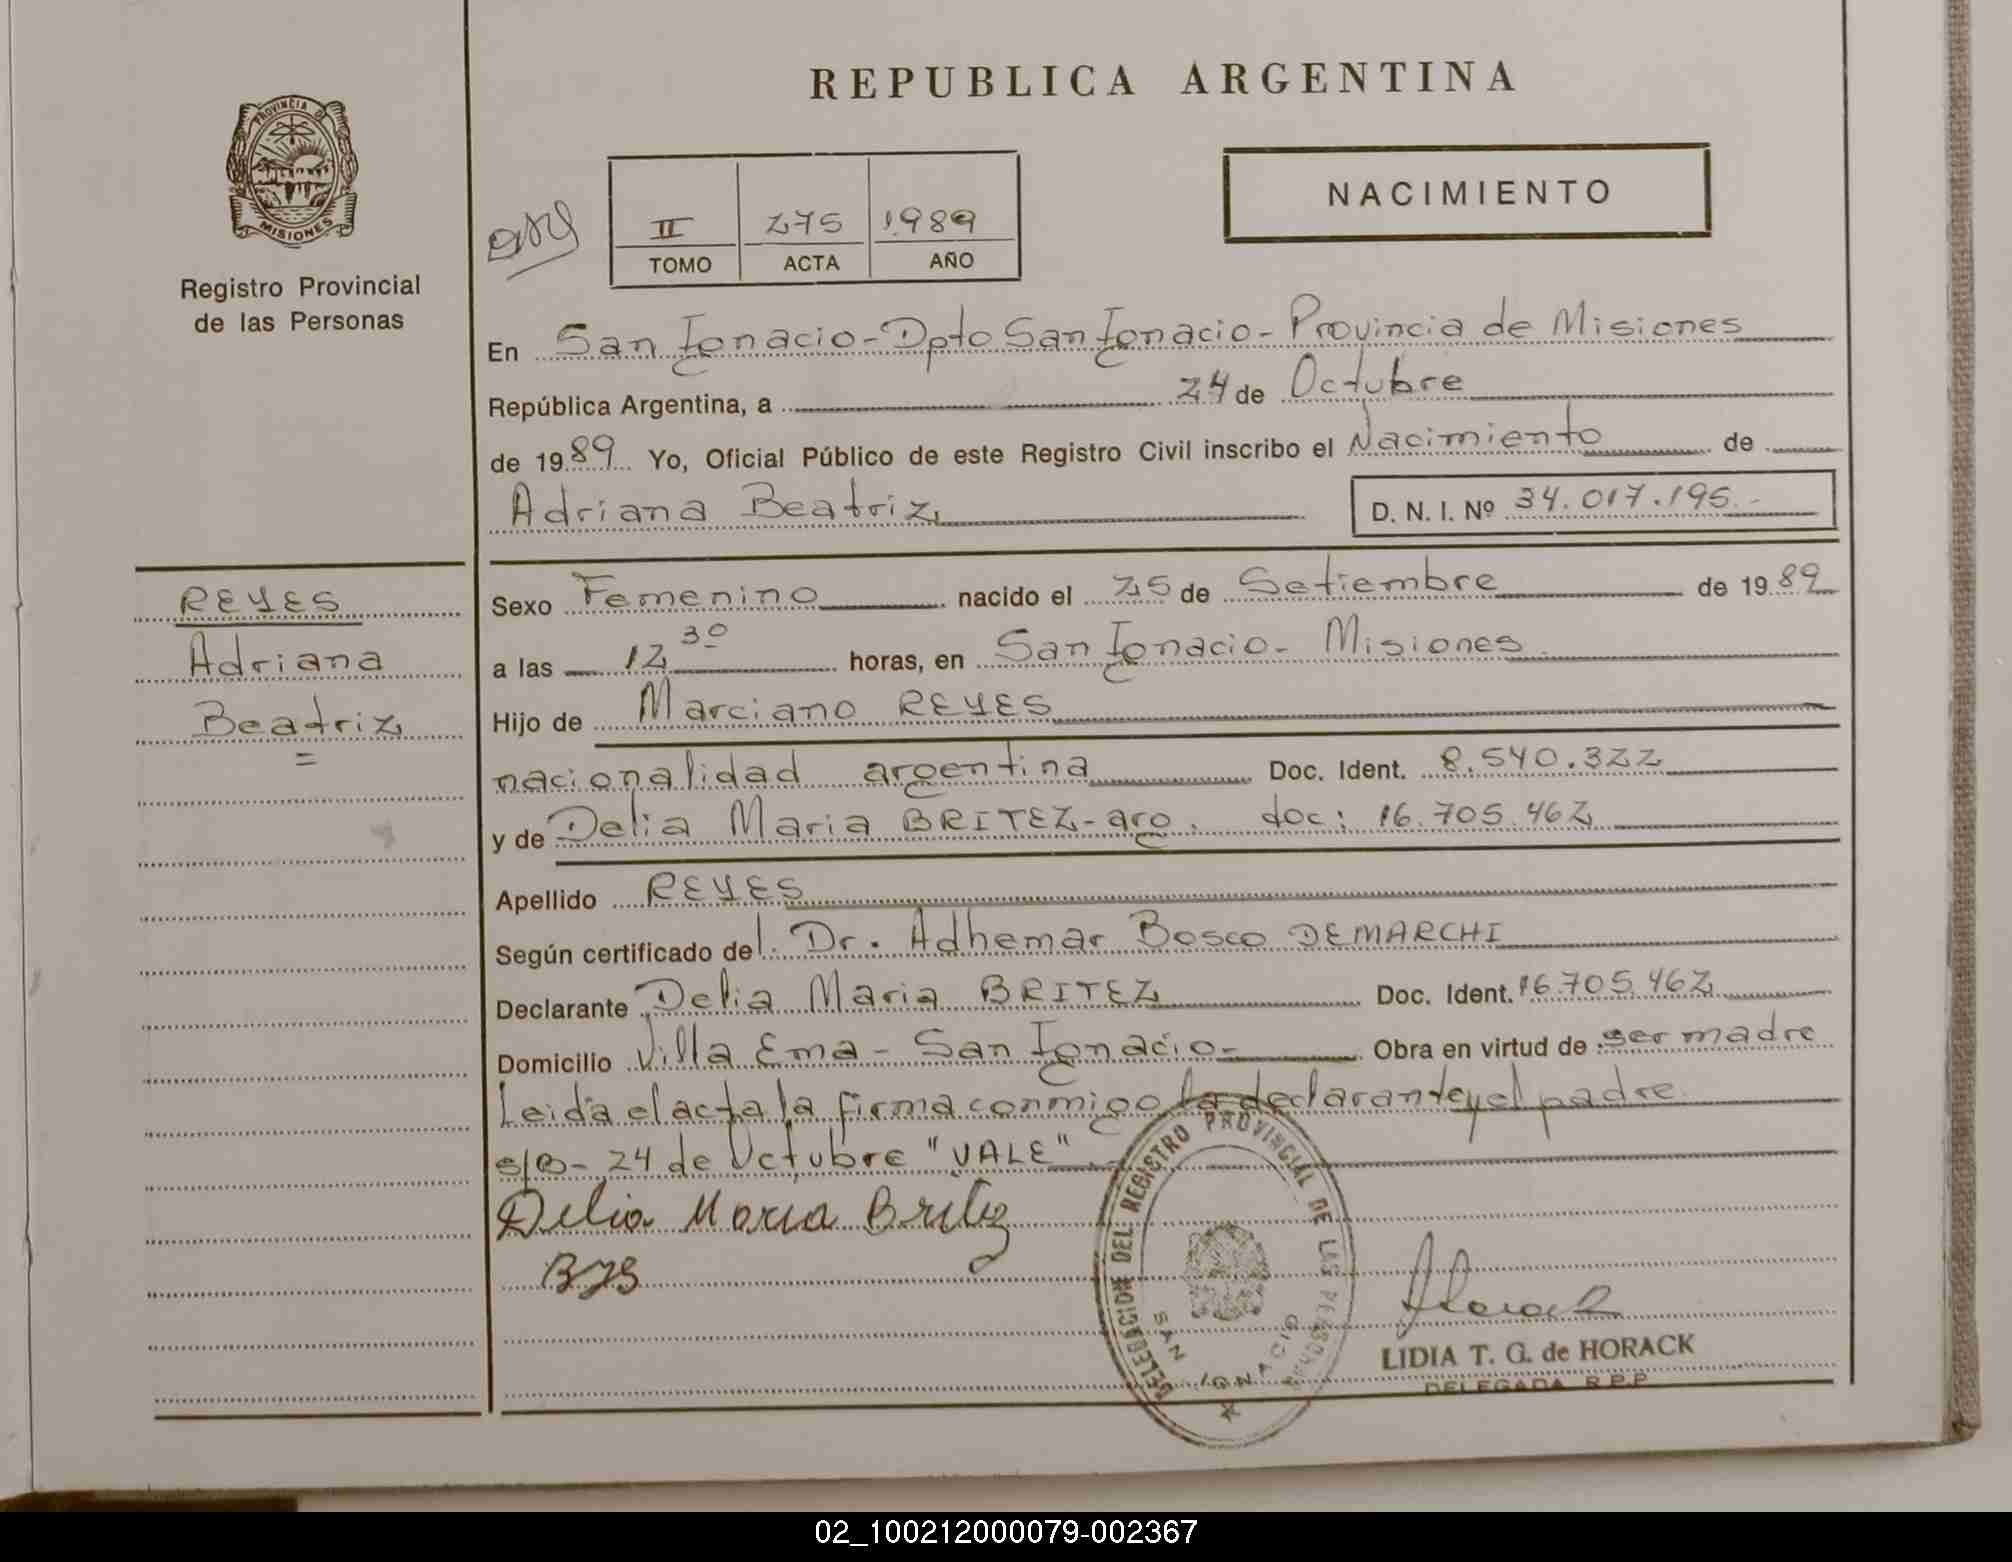 REPUBLICA ARGENTINA
PROVINCIA D
MISIONES
Registro Provincial
de las Personas
II 275 1989
TOMO ACTA AÑO
NACIMIENTO
En San Ignacio - Dpto San Ignacio - Provincia de Misiones
República Argentina, a 24 de Octubre
de 1989 Yo, Oficial Público de este Registro Civil inscribo el Nacimiento de
Adriana Beatriz D. N. I. Nº 34.017.195.-
REYES
Adriana
Beatriz
=
Sexo Femenino nacido el 25 de Setiembre de 1989
a las 12 30 horas, en San Ignacio - Misiones.
Hijo de Marciano REYES
nacionalidad argentina Doc. Ident. 8.540.322
y de Delia Maria BRITEZ - arg. doc: 16.705.462
Apellido REYES
Según certificado del. Dr. Adhemar Bosco DEMARCHI
Declarante Delia Maria BRITEZ Doc. Ident. 16.705.462
Domicilio Villa Ema - San Ignacio - Obra en virtud de ser madre
Leida el acta la firma conmigo la declarante y el padre.
S/B - 24 de Octubre "VALE".
Delia Maria Britez
DELEGACION DEL REGISTRO PROVINCIAL DE LAS PERSONAS
SAN IGNACIO
Horack
LIDIA T. G. de HORACK
DELEGADA R.P.P
02_100212000079-002367